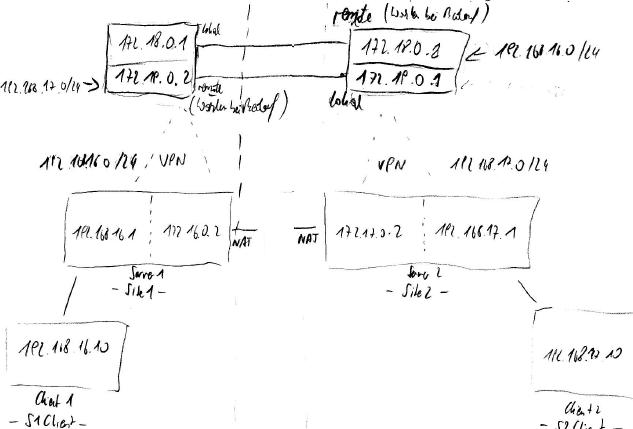 remote (Wählen bei Bedarf)
lokal
172.18.0.1
172.18.0.2
192.168.16.0/24
192.168.17.0/24
172.19.0.2
172.19.0.1
remote
(Wählen bei Bedarf)
lokal
192.168.16.0/24
VPN
VPN
192.168.17.0/24
192.168.16.1
172.16.0.2
NAT
NAT
172.17.0.2
192.168.17.1
Server 1
- Site 1 -
Server 2
- Site 2 -
192.168.16.10
192.168.17.10
Client 1
- S1 Client -
Client 2
- S2 Client -